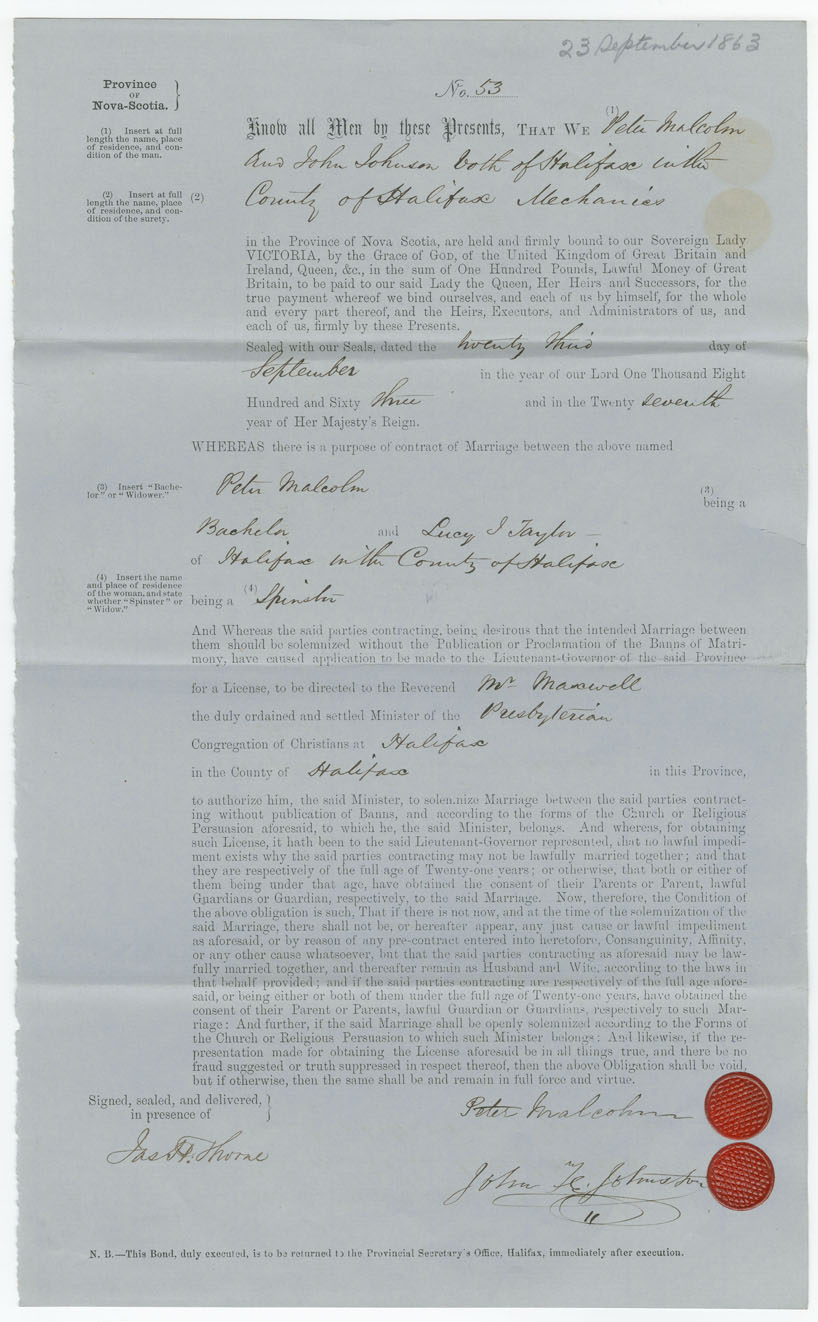 23 September 1863
Province
OF
Nova-Scotia.
No. 53
(1) Insert at full
length the name, place
of residence, and con-
dition of the man.
Know all Men by these Presents, THAT WE (1) Peter Malcolm
And John Johnson both of Halifax in the
(2) Insert at full
length the name, place
of residence, and con-
dition of the surety.
(2) County of Halifax Mechanics
in the Province of Nova Scotia, are held and firmly bound to our Sovereign Lady
VICTORIA, by the Grace of GOD, of the United Kingdom of Great Britain and
Ireland, Queen, &c., in the sum of One Hundred Pounds, Lawful Money of Great
Britain, to be paid to our said Lady the Queen, Her Heirs and Successors, for the
true payment whereof we bind ourselves, and each of us by himself, for the whole
and every part thereof, and the Heirs, Executors, and Administrators of us, and
each of us, firmly by these Presents.
Sealed with our Seals, dated the twenty third day of
September in the year of our Lord One Thousand Eight
Hundred and Sixty three and in the Twenty seventh
year of Her Majesty's Reign.
WHEREAS there is a purpose of contract of Marriage between the above named
(3) Insert "Bache-
lor" or "Widower."
Peter Malcolm (3)
being a
Bachelor and Lucy J Taylor —
of Halifax in the County of Halifax
(4) Insert the name
and place of residence
of the woman, and state
whether "Spinster" or
"Widow."
being a (4) Spinster
And Whereas the said parties contracting, being desirous that the intended Marriage between
them should be solemnized without the Publication or Proclamation of the Banns of Matri-
mony, have caused application to be made to the Lieutenant-Governor of the said Province
for a License, to be directed to the Reverend Mr Maxwell
the duly ordained and settled Minister of the Presbyterian
Congregation of Christians at Halifax
in the County of Halifax in this Province,
to authorize him, the said Minister, to solemnize Marriage between the said parties contract-
ing without publication of Banns, and according to the forms of the Church or Religious
Persuasion aforesaid, to which he, the said Minister, belongs. And whereas, for obtaining
such License, it hath been to the said Lieutenant-Governor represented, that no lawful impedi-
ment exists why the said parties contracting may not be lawfully married together; and that
they are respectively of the full age of Twenty-one years; or otherwise, that both or either of
them being under that age, have obtained the consent of their Parents or Parent, lawful
Guardians or Guardian, respectively, to the said Marriage. Now, therefore, the Condition of
the above obligation is such, That if there is not now, and at the time of the solemnization of the
said Marriage, there shall not be, or hereafter appear, any just cause or lawful impediment
as aforesaid, or by reason of any pre-contract entered into heretofore, Consanguinity, Affinity,
or any other cause whatsoever, but that the said parties contracting as aforesaid may be law-
fully married together, and thereafter remain as Husband and Wife, according to the laws in
that behalf provided; and if the said parties contracting are respectively of the full age afore-
said, or being either or both of them under the full age of Twenty-one years, have obtained the
consent of their Parent or Parents, lawful Guardian or Guardians, respectively to such Mar-
riage: And further, if the said Marriage shall be openly solemnized according to the Forms of
the Church or Religious Persuasion to which such Minister belongs: And likewise, if the re-
presentation made for obtaining the License aforesaid be in all things true, and there be no
fraud suggested or truth suppressed in respect thereof, then the above Obligation shall be void,
but if otherwise, then the same shall be and remain in full force and virtue.
Signed, sealed, and delivered,
in presence of
Peter Malcolm
Jas H. Thorne
John Johnston
N. B.—This Bond, duly executed, is to be returned to the Provincial Secretary's Office, Halifax, immediately after execution.